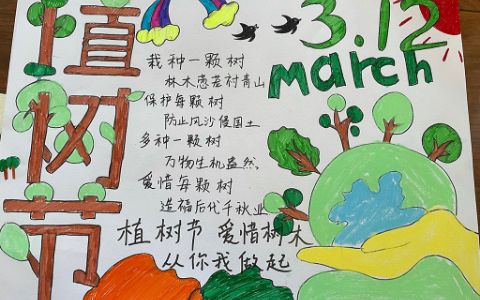 植树节
3.12
March
栽种一颗树
林木葱茏衬青山
保护每颗树
防止风沙侵国土
多种一颗树
万物生机盎然
爱惜每颗树
造福后代千秋业
植树节 爱惜树木
从你我做起